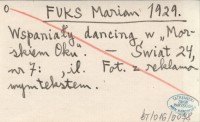 0 FUKS Marian 1929.
Wspaniały dancing w „Mor-
skiem Oku". — Świat 24,
nr 7: , il. Fot. z reklamo
wym tekstem.